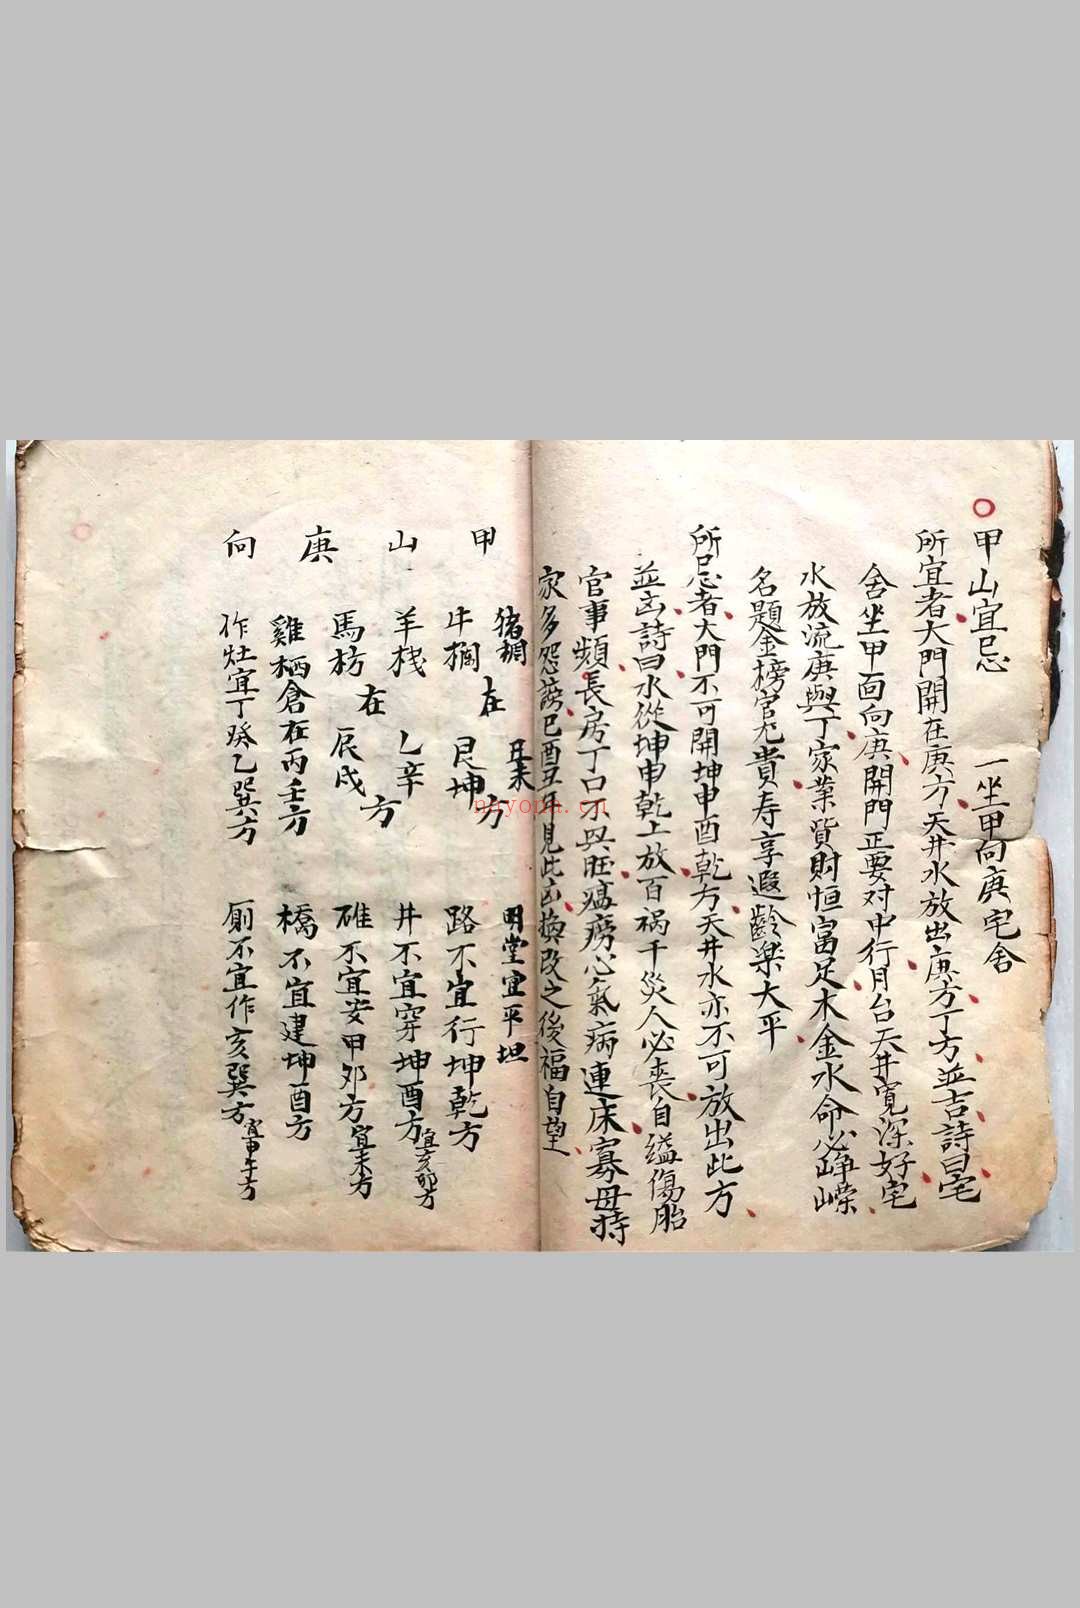 甲山宜忌 一坐甲向庚宅舍
所宜者大門開在庚方天井水放出庚方丁方並吉詩曰宅
舍坐甲面向庚開門正要对中行月台天井寬深好宅
水放流庚與丁家業貨財恒富足木金水命必崢嶸
名題金榜官尤貴寿享遐齡樂大平
所忌者大門不可開坤申酉乾方天井水亦不可放出此方
並凶詩曰水從坤申乾上放百祸千災人必喪自縊傷胎
官事頻長房丁口不興旺瘟癆心氣病連床寡母持
家多怨謗巳酉丑年見此凶換改之後福自望
甲山庚向
猪椆 在 丑未 明堂宜平坦
牛棩 艮坤方 路不宜行坤乾方
羊棧 在 乙辛 井不宜穿坤酉方宜亥卯方
馬枋 辰戌方 碓不宜安甲卯方宜未方
雞栖倉在丙壬方 橋不宜建坤酉方
作灶宜丁癸乙巽方 厠不宜作亥巽方宜甲午方
nayona.cn